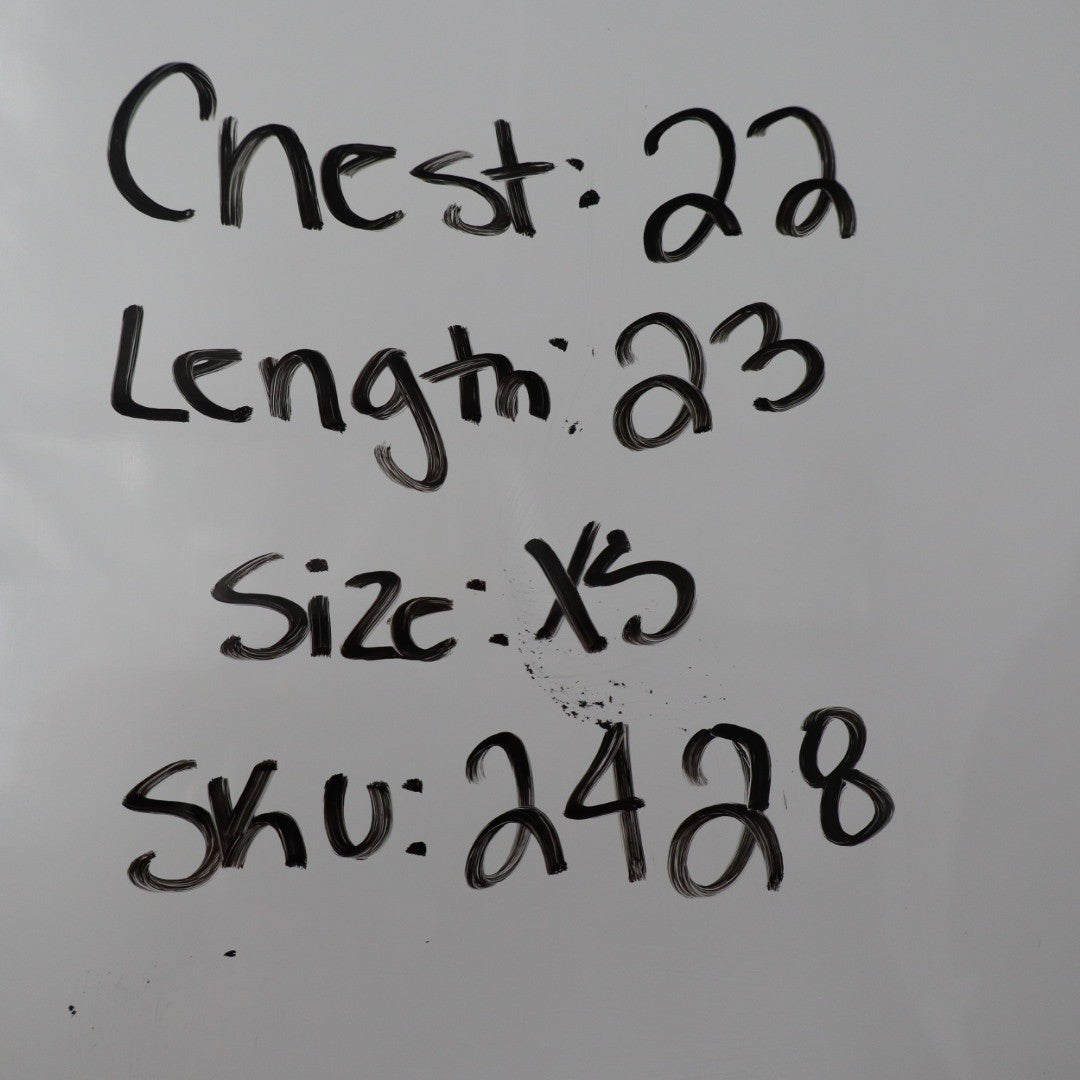 Chest: 22
Length: 23
Size: XS
SKU: 2428